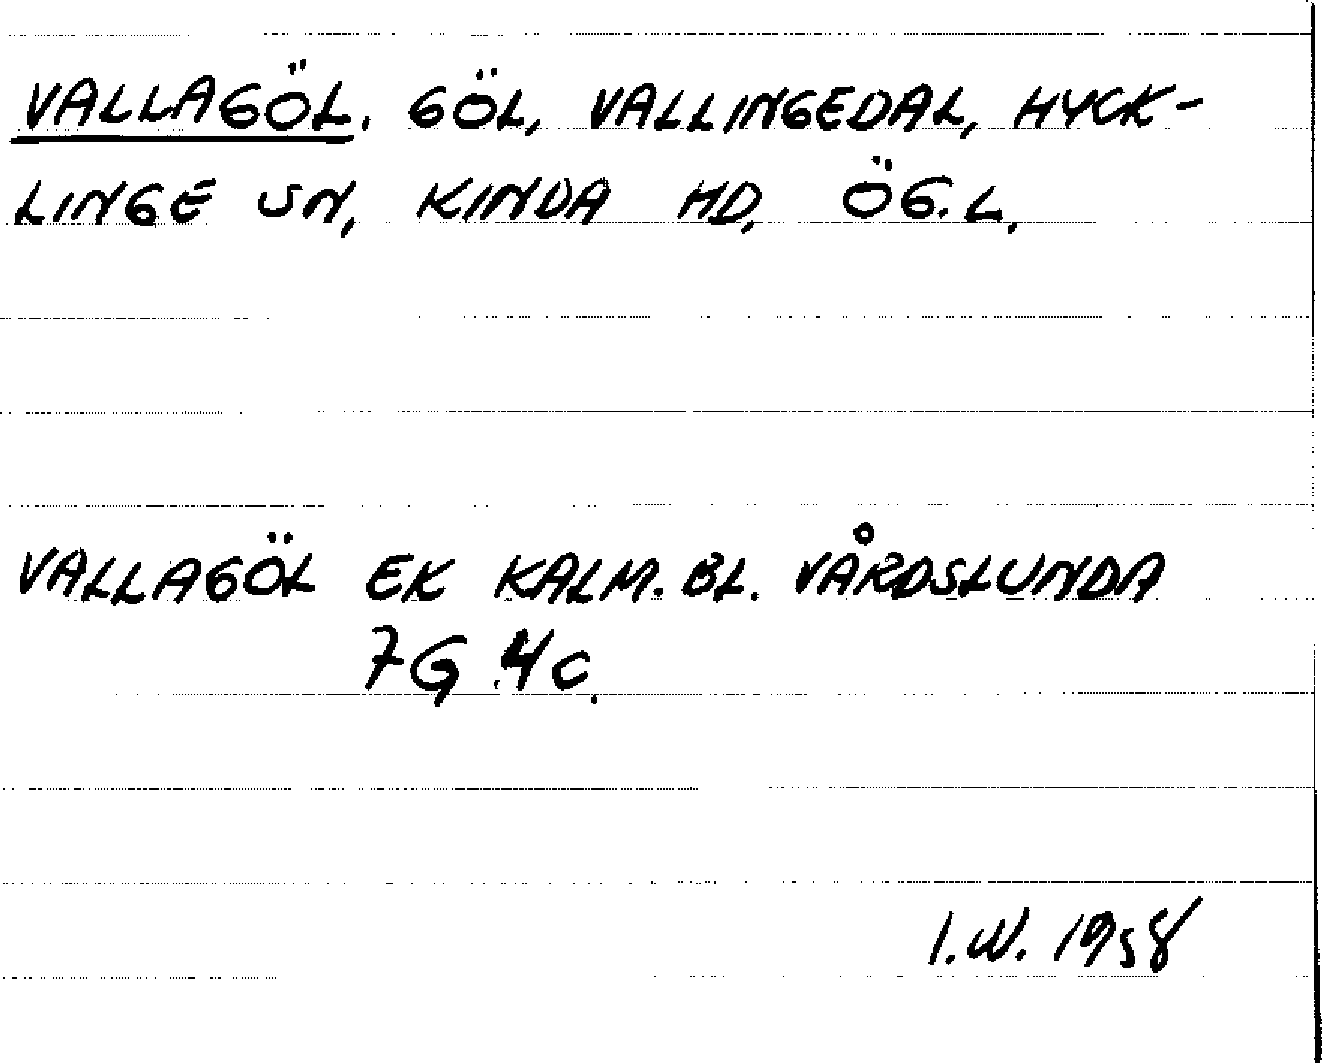 VALLAGÖL. GÖL, VALLINGEDAL, HYCK-
LINGE SN, KINDA HD, ÖG.L.
VALLAGÖL EK KALM.BL. VÅRDSLUNDA
7G 4c.
I.W. 1958